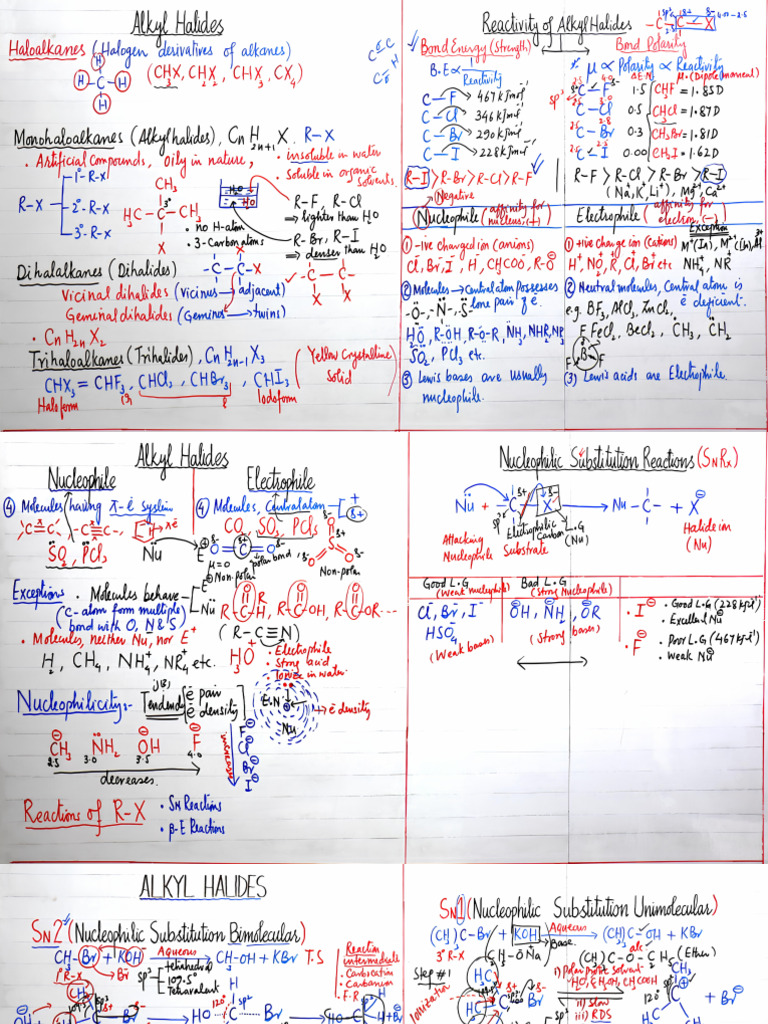 Alkyl Halides
Haloalkanes (Halogen derivatives of alkanes)
(CHX, CH2X2, CHX3, CX4)
H
H C H
H
Monohaloalkanes (Alkyl halides), CnH2n+1X. R-X
• Artificial Compounds, Oily in nature,
• insoluble in water
• Soluble in organic solvents.
R-X
1°-R-X
2°-R-X
3°-R-X
CH3
H3C-C-CH3
X
3°
• no H-atom
• 3-Carbon atoms
R-F, R-Cl
⇒ lighter than H2O
R-Br, R-I
⇒ denser than H2O
Dihaloalkanes (Dihalides)
-C-C-X
X
-C-C-
X X
Vicinal dihalides (Vicinus → adjacent)
Geminal dihalides (Geminus → twins)
• CnH2nX2
Trihaloalkanes (Trihalides), CnH2n-1X3
(Yellow Crystalline Solid)
CHX3 = CHF3, CHCl3, CHBr3, CHI3
Haloform
Iodoform
Reactivity of Alkyl Halides
Bond Energy (Strength)
B·E ∝ 1/Reactivity
C-F → 467 kJmol⁻¹
C-Cl → 346 kJmol⁻¹
C-Br → 290 kJmol⁻¹
C-I → 228 kJmol⁻¹
R-I > R-Br > R-Cl > R-F
Bond Polarity
μ ∝ Polarity ∝ Reactivity
μ. (Dipole moment)
C-F 1.5 CH3F = 1.85D
C-Cl 0.5 CH3Cl = 1.87D
C-Br 0.3 CH3Br = 1.81D
C-I 0.00 CH3I = 1.62D
R-F > R-Cl > R-Br > R-I
(Na⁺, K⁺, Li⁺), Mg²⁺, Ca²⁺
Negative
Nucleophile (affinity for nucleus, (+)
① -ive charged ion (anions)
Cl, Br, I⁻, H, CH3COO, R-O
② Molecules → Central atom possesses lone pair of e.
-O-, -N-, -S-
HO, R-OH, R-O-R, NH3, NH2R, NR3
SO2, PCl3 etc.
③ Lewis bases are usually nucleophile.
Electrophile (affinity for electron, (-)
Exception
① +ive charge ion (Cations)
H⁺, NO2, R, Cl, Br etc
NH4, NR4
② Neutral molecules, Central atom is e deficient.
e.g. BF3, AlCl3, ZnCl2,
FeCl3, BeCl2, CH3, CH2
F B F
F
(3) Lewis acids are Electrophile.
Alkyl Halides
Nucleophile
④ Molecules having π-e system
SO2, PCl3
Nu
Electrophile
④ Molecules, Central atom
CO2, SO3, PCl5
E
O=C=O
μ=0
polar bond
Non-polar
Non-polar
Exceptions
• Molecules behave
(C-atom form multiple bond with O, N & S)
E
Nu
R-C-H, R-C-OH, R-C-OR...
(R-C≡N)
• Molecules, neither Nu, nor E⁺
H2, CH4, NH4⁺, NR4⁺ etc.
H3O⁺
• Electrophile
• Strong acid
• Ionize in water
Nucleophilicity:-
Tendency
e pair
e density
E·N
Nu
→ e density
CH3 NH2 OH F
2.5 3.0 3.5 4.0
decreases
F
Cl
Br
I
increases
Reactions of R-X
• SN Reactions
• β-E Reactions
Nucleophilic Substitution Reactions (SN Rx)
Nu + -C-X → Nu-C- + X
Attacking Nucleophile
Substrate
Electrophilic Carbon
L.G (Nu)
Halide ion (Nu)
Good L.G (Weak nucleophile)
Bad L.G (Strong Nucleophile)
Cl, Br, I⁻
HSO4
(Weak bases)
OH, NH2, OR
(Strong bases)
• I
• Good L.G (228 kJ)
• Excellent Nu
• F
• Poor L.G (467 kJ)
• Weak Nu
ALKYL HALIDES
SN2 (Nucleophilic Substitution Bimolecular)
CH3-Br + KOH Aqueous → CH3-OH + KBr
T.S
1° R-X
Br
sp³
tetrahedral
109.5°
Tetravalent
Reaction intermediate
• Carbocation
• Carbanion
• F.R
SN1 (Nucleophilic Substitution Unimolecular)
(CH3)3C-Br + KOH Aqueous → (CH3)3C-OH + KBr
3° R-X
Base
CH3-ONa
alc
(CH3)3C-O-CH3 (Ether)
Step #1
Ionization
i) Polar protic solvent
H2O, EtOH, CH3COOH
ii) Slow
iii) RDS
120°
CH3
+ Br